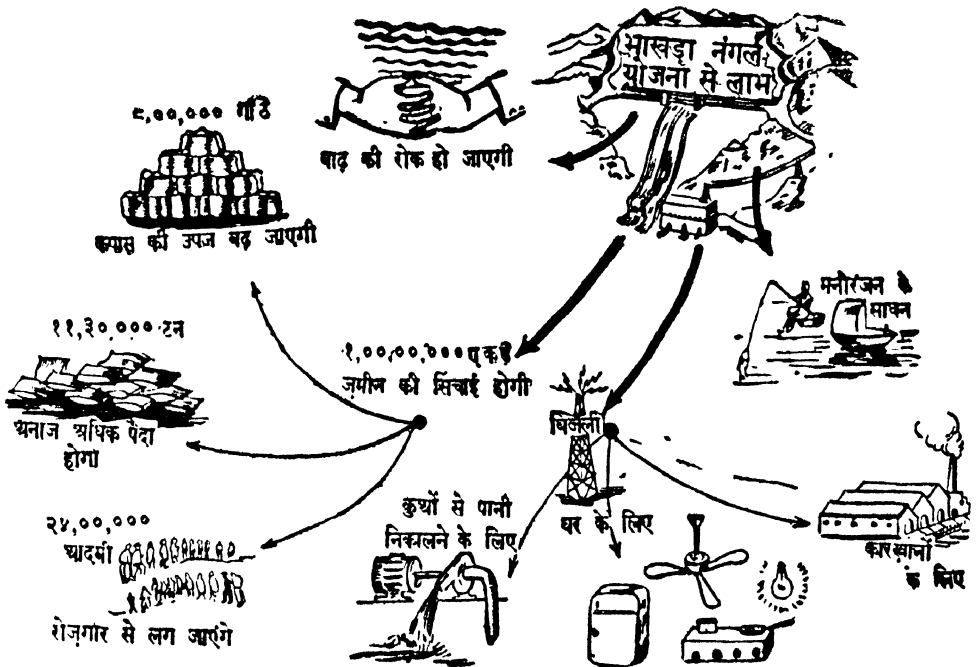 भाखड़ा नंगल
योजना से लाभ
बाढ़ की रोक हो जाएगी
८,००,००० गाँठे
कपास की उपज बढ़ जाएगी
मनोरंजन के
साधन
११,३०,००० टन
अनाज अधिक पैदा
होगा
१,००,००,००० एकड़
ज़मीन की सिंचाई होगी
बिजली
२४,००,०००
आदमी
रोज़गार से लग जाएंगे
कुओं से पानी
निकालने के लिए
घर के लिए
कारखानों
के लिए